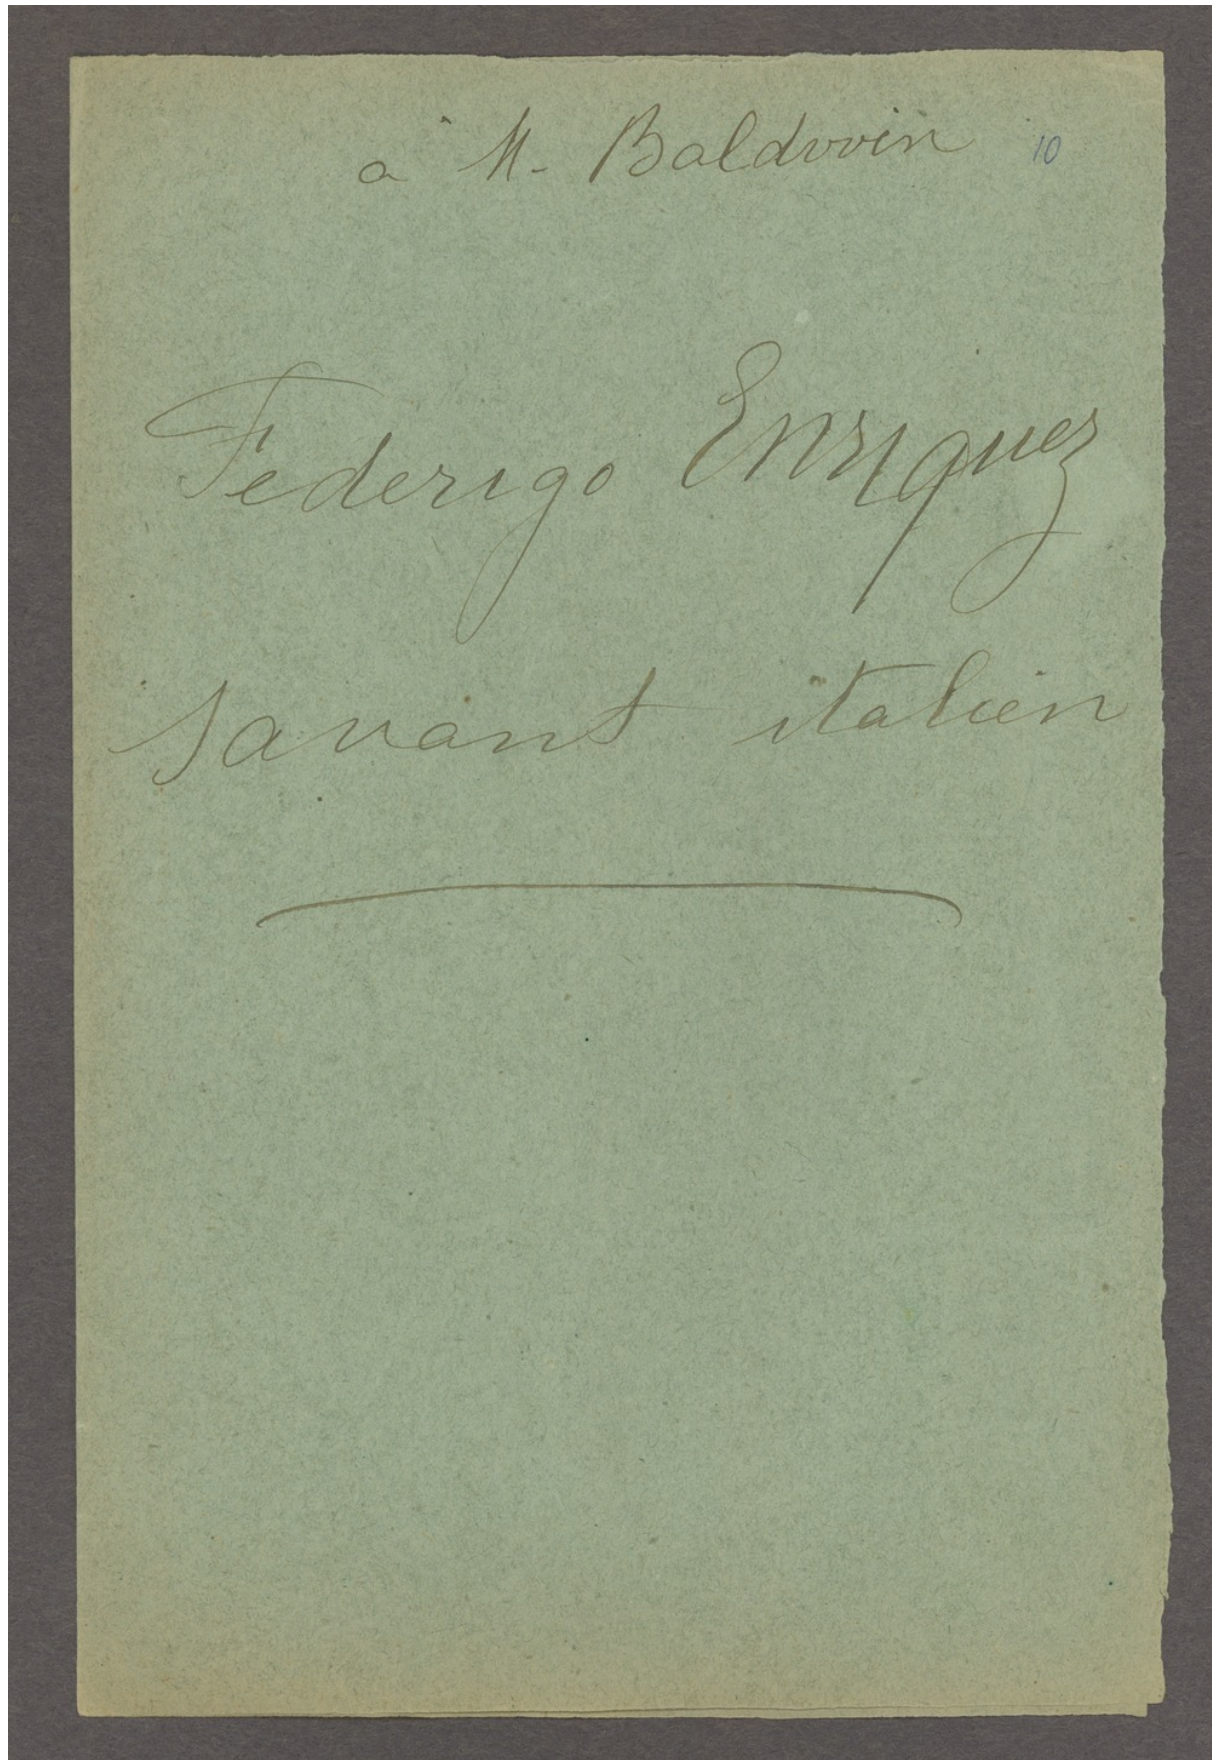 à M. Baldwin 10
Federigo Enriques
savant italien